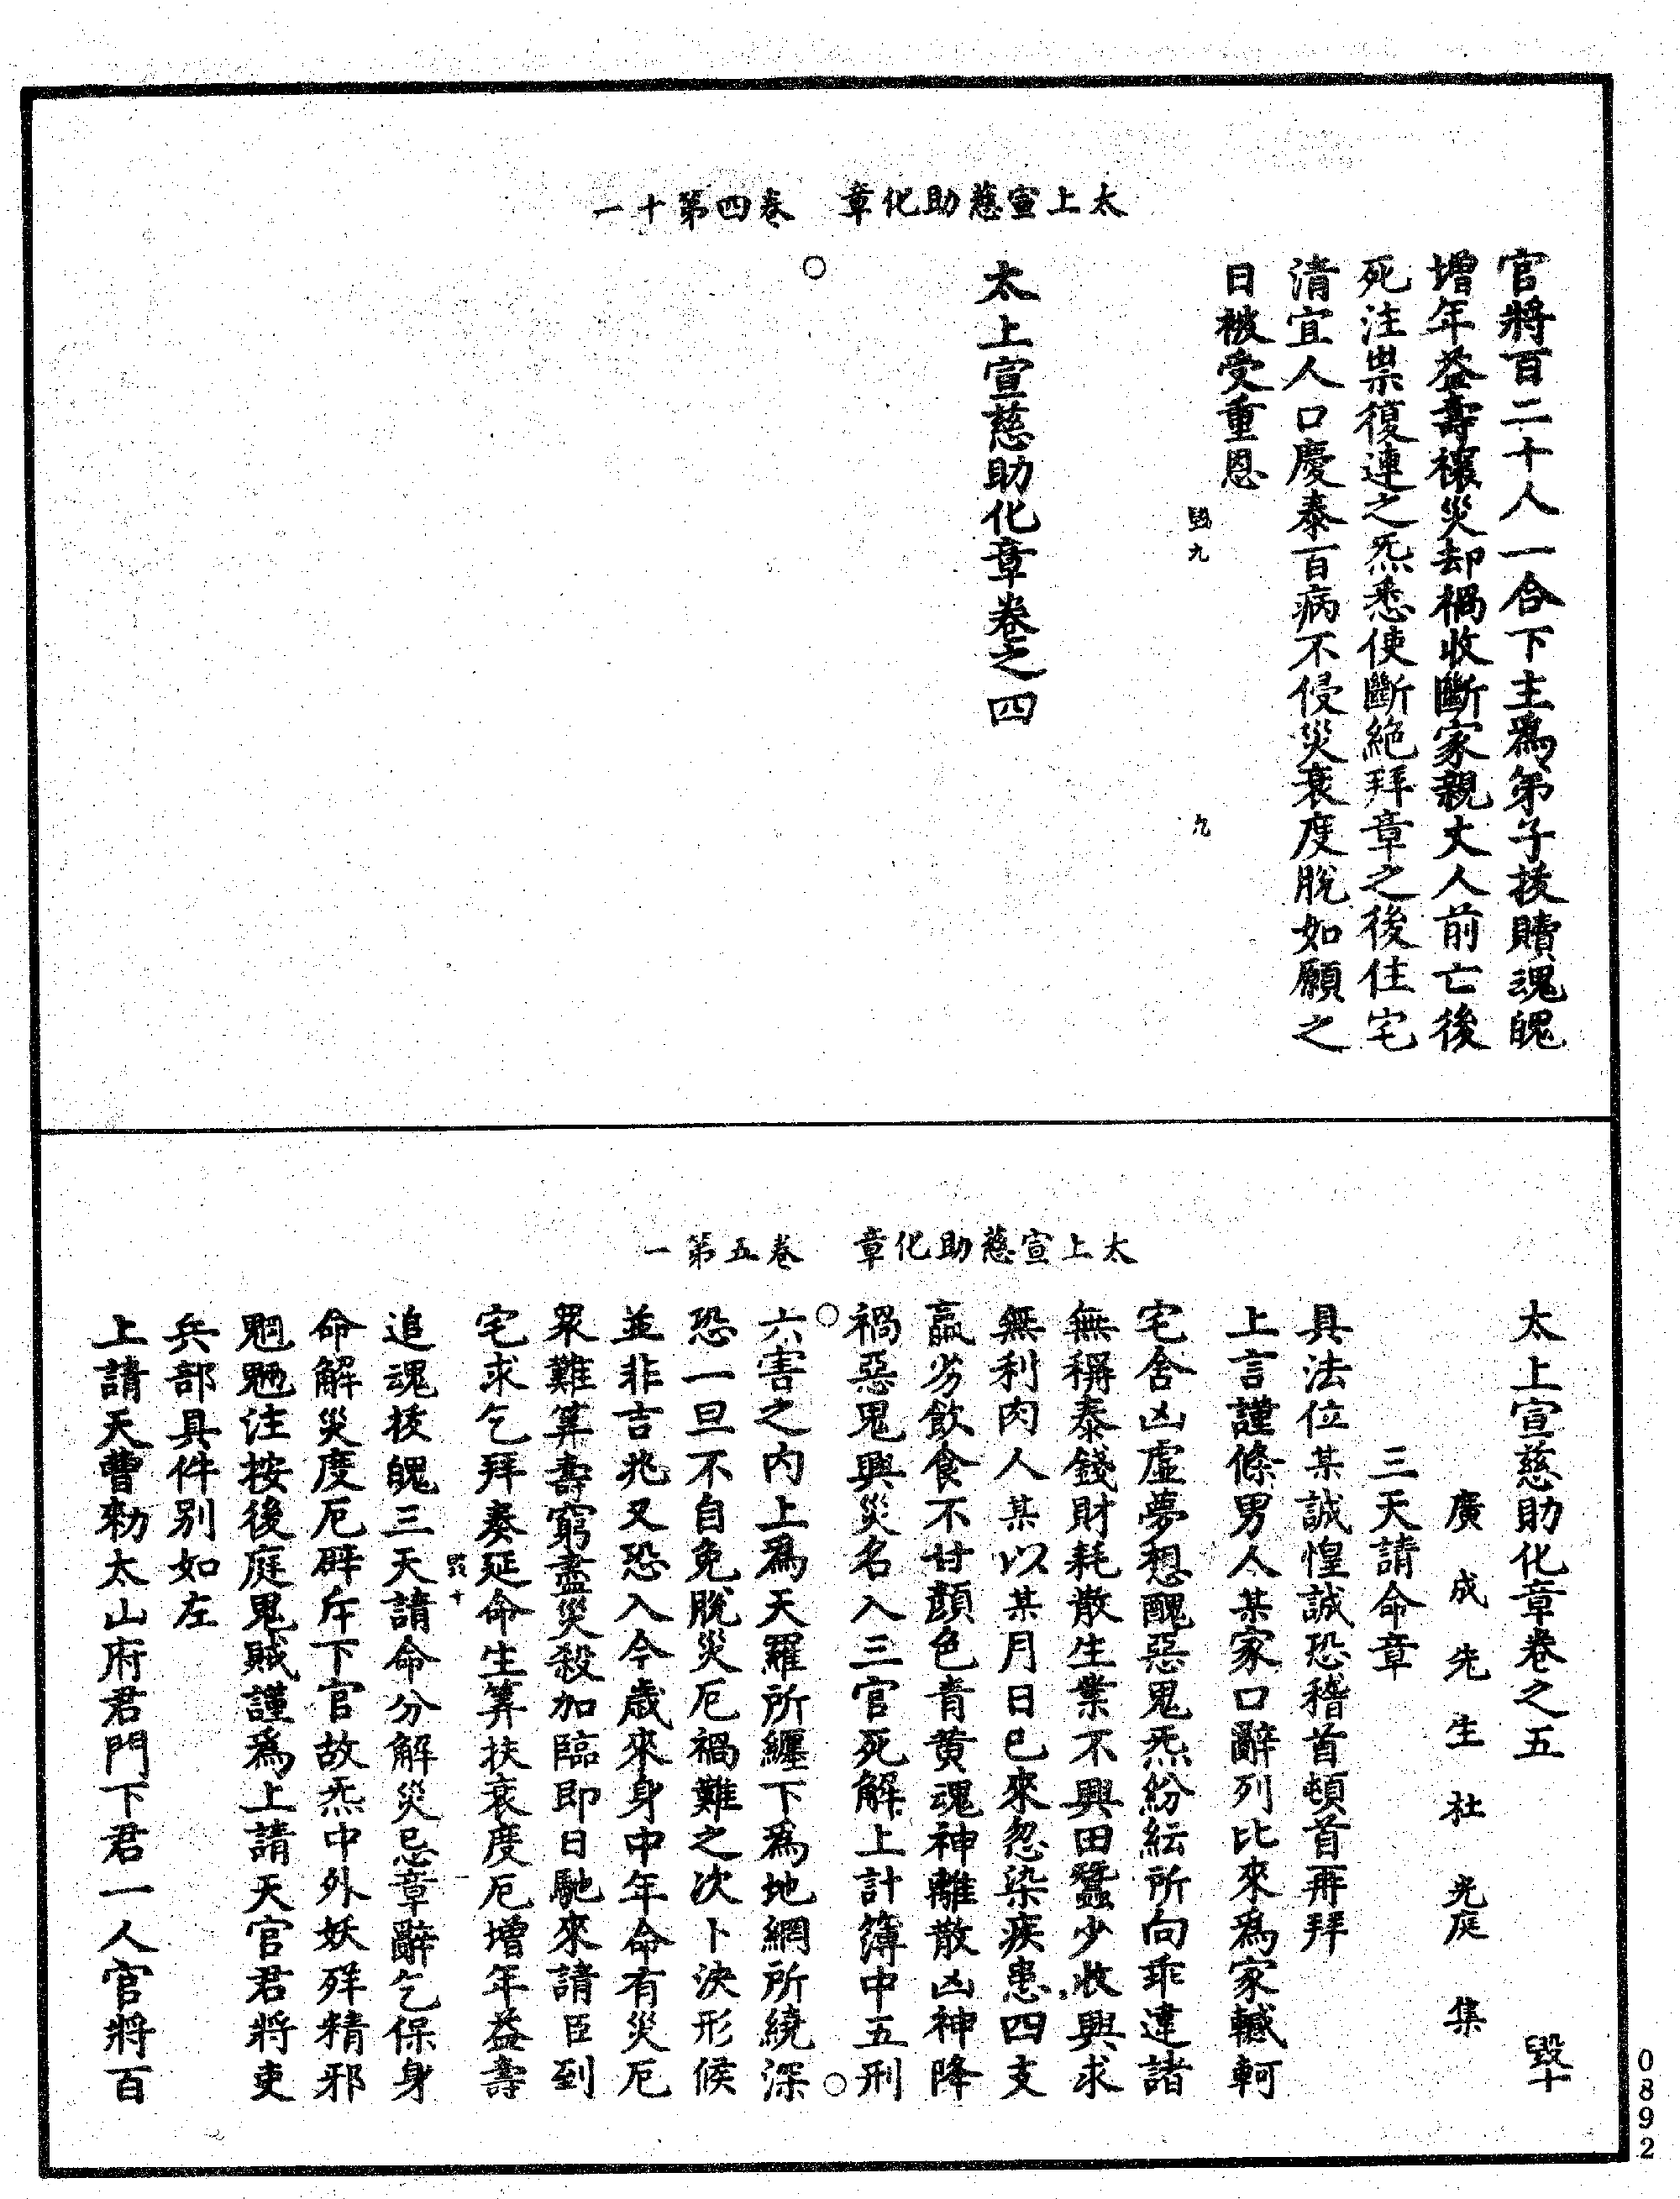 太上宣慈助化章　卷四第十一
官將百二十人一合下主爲弟子拔贖魂魄
增年益壽禳災却禍收斷家親丈人前亡後
死注祟復連之炁悉使斷絶拜章之後住宅
清宜人口慶泰百病不侵災衰度脫如願之
日被受重恩
毀九
九
太上宣慈助化章卷之四
太上宣慈助化章　卷五第一
太上宣慈助化章卷之五　毀十
廣成先生杜光庭集
三天請命章
具法位某誠惶誠恐稽首頓首再拜
上言謹條男人某家口辭列比來爲家轗軻
宅舍凶虛夢想醜惡鬼炁紛紜所向乖違諸
無稱泰錢財耗散生業不興田蠶少收興求
無利肉人某以某月日已來忽染疾患四支
羸劣飲食不甘顏色青黃魂神離散凶神降
禍惡鬼興災名入三官死解上計簿中五刑
六害之內上爲天羅所纏下爲地網所繞深
恐一旦不自免脫災厄禍難之次卜決形候
並非吉兆又恐入今歲來身中年命有災厄
眾難筭壽窮盡災殺加臨即日馳來請臣到
宅求乞拜奏延命生筭扶衰度厄增年益壽
毀十
追魂拔魄三天請命分解災忌章辭乞保身
命解災度厄辟斥下官故炁中外妖殃精邪
魍魎注按後庭鬼賊謹爲上請天官君將吏
兵部具件別如左
上請天曹勑太山府君門下君一人官將百
0892